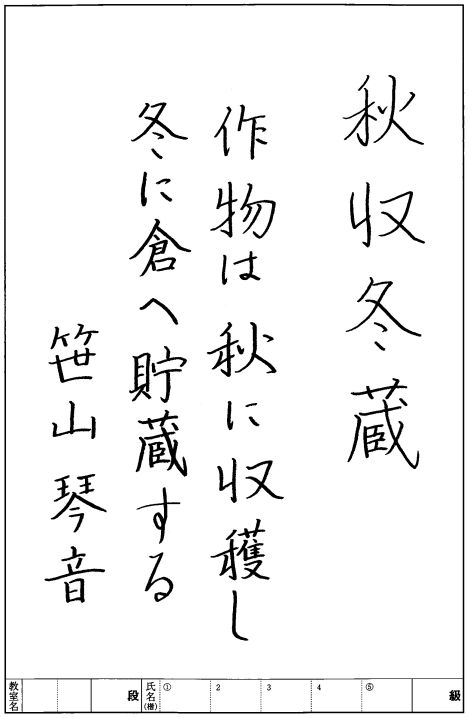 秋収冬蔵
作物は秋に収穫し
冬に倉へ貯蔵する
笹山琴音
級
⑤
4
3
2
①
氏名(権)
段
教室名